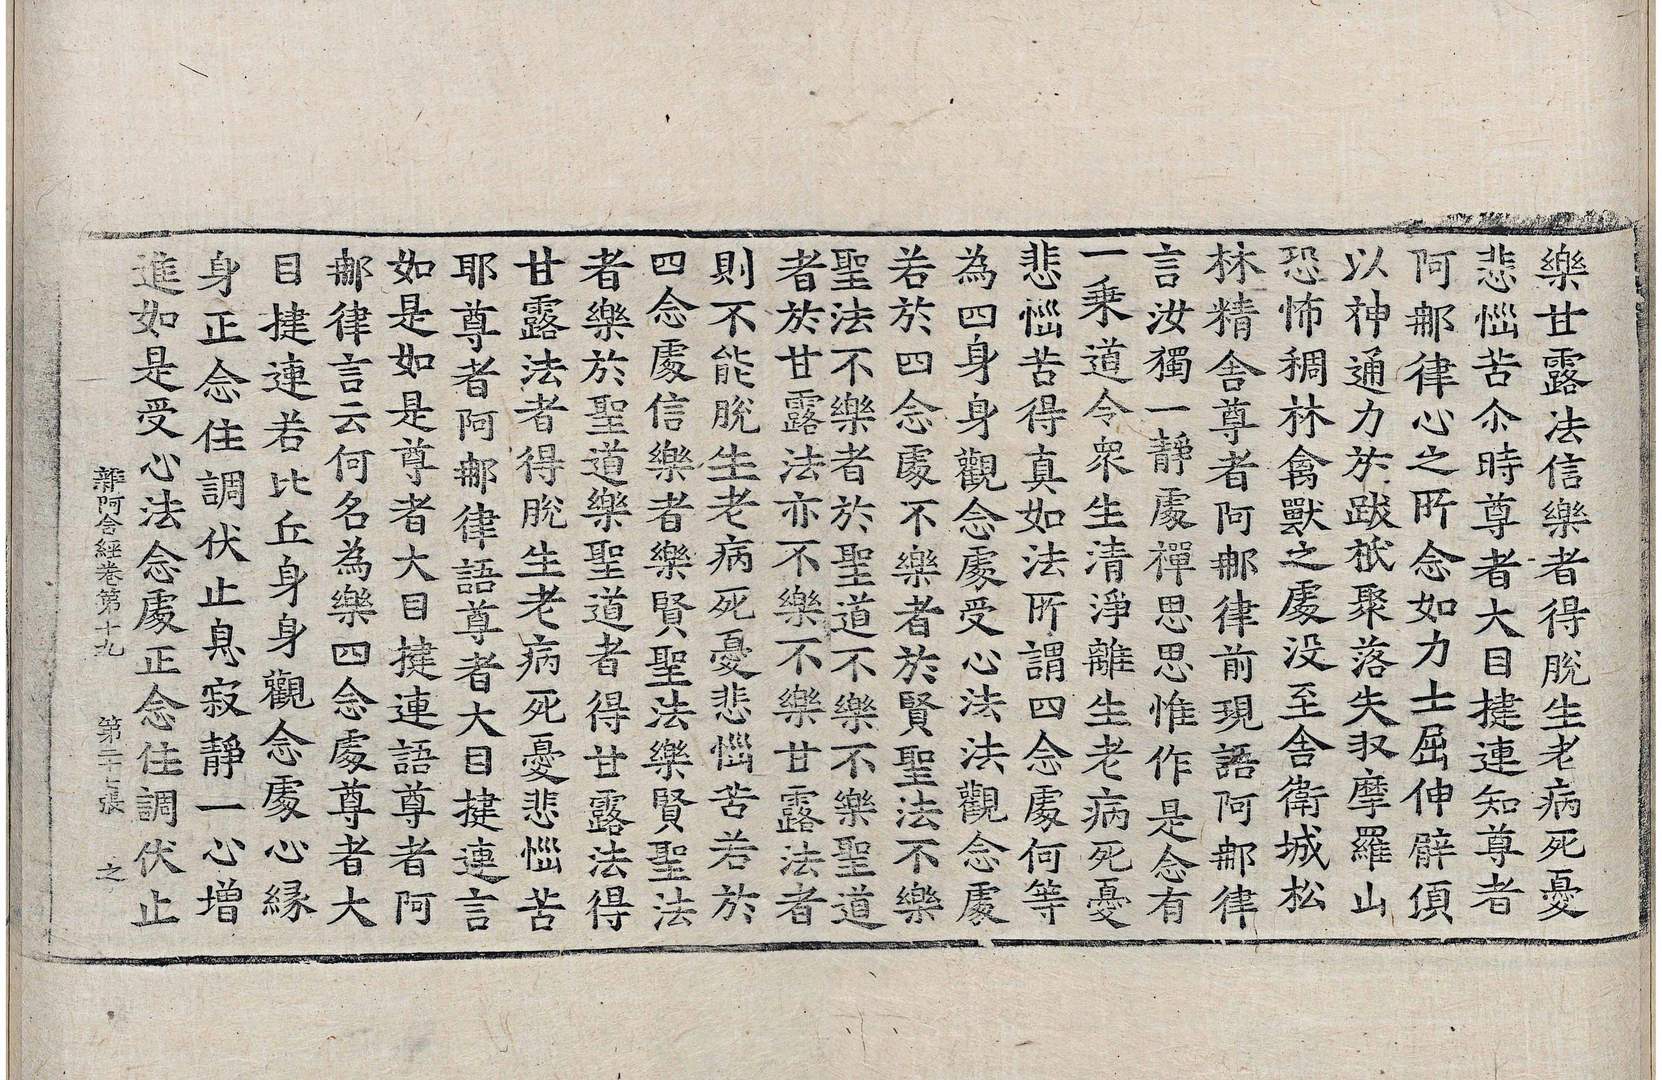 樂甘露法信樂者得脫生老病死憂
悲惱苦尒時尊者大目揵連知尊者
阿那律心之所念如力士屈伸臂頃
以神通力於跋祇聚落失収摩羅山
恐怖稠林禽獸之處没至舍衛城松
林精舍尊者阿那律前現語阿那律
言汝獨一靜處禪思思惟作是念有
一乗道令衆生清淨離生老病死憂
悲惱苦得真如法所謂四念處何等
為四身身觀念處受心法法觀念處
若於四念處不樂者於賢聖法不樂
聖法不樂者於聖道不樂不樂聖道
者於甘露法亦不樂不樂甘露法者
則不能脫生老病死憂悲惱苦若於
四念處信樂者樂賢聖法樂賢聖法
者樂於聖道樂聖道者得甘露法得
甘露法者得脫生老病死憂悲惱苦
耶尊者阿那律語尊者大目揵連言
如是如是尊者大目揵連語尊者阿
那律言云何名為樂四念處尊者大
目揵連若比丘身身觀念處心緣
身正念住調伏止息寂靜一心增
進如是受心法念處正念住調伏止
雜阿含經卷第十九 第二十張 之